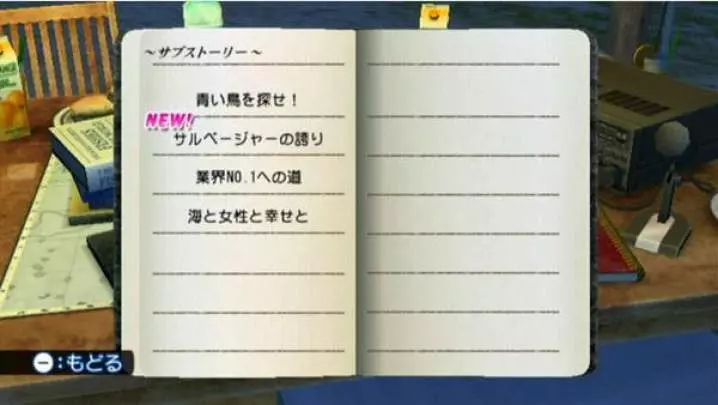 ～サブストーリー～
青い鳥を探せ！
NEW!
サルベージャーの誇り
業界NO.1への道
海と女性と幸せと
⊖:もどる